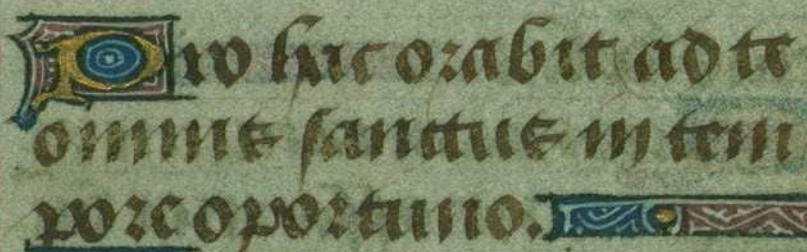 Pro hac orabit ad te
omnis sanctus in tem
pore oportuno.